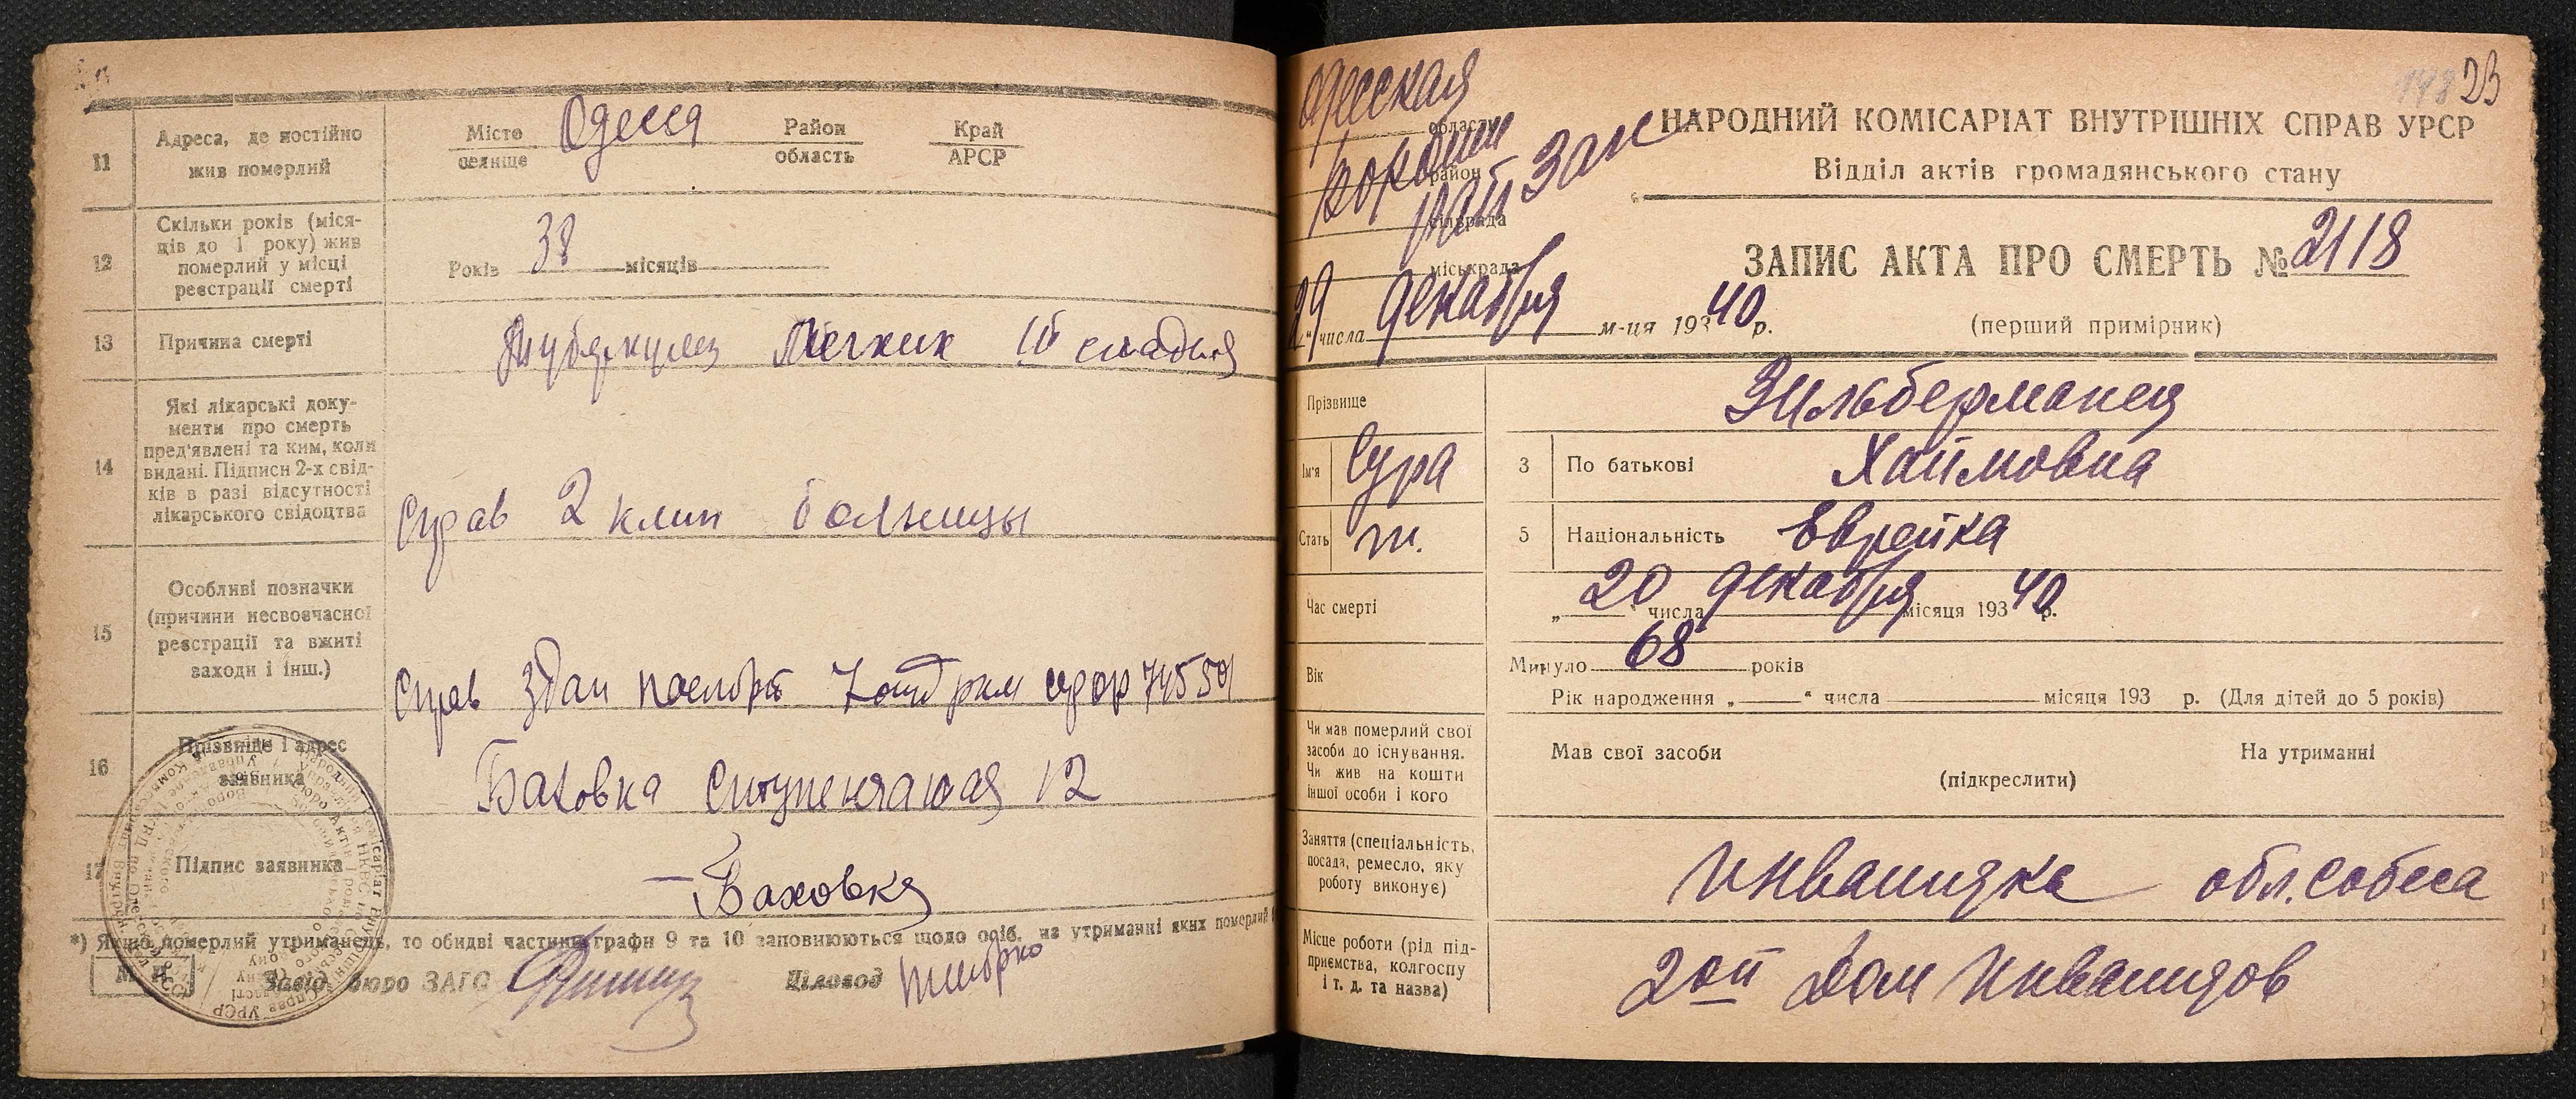 11
Адреса, де постійно
жив померлий
Місто
селище
Одесса
Район
область
Край
АРСР
12
Скільки років (міся-
ців до 1 року) жив
померлий у місці
реєстрації смерті
Років 38 місяців
13
Причина смерті
Туберкулез легких III стадия
14
Які лікарські доку-
менти про смерть
пред'явлені та ким, коли
видані. Підписи 2-х свід-
ків в разі відсутності
лікарського свідоцтва
Справ 2 клин болницы
15
Особливі позначки
(причини несвоєчасної
реєстрації та вжиті
заходи і інш.)
Справ здан паспорт 7 отд ркм 74550
16
Прізвище і адрес
заявника
Баховка 12
17
Підпис заявника
Баховка
*) Якщо померлий утриманець, то обидві частини графи 9 та 10 заповнюються щодо осіб, на утриманні яких померлий
М. П.
Завід. бюро ЗАГС
Діловод
23
Одесская
область
район
Ворошил
рай Заг
сільрада
міськрада
29 числа декабря м-ця 1940 р.
НАРОДНИЙ КОМІСАРІАТ ВНУТРІШНІХ СПРАВ УРСР
Відділ актів громадянського стану
ЗАПИС АКТА ПРО СМЕРТЬ № 2118
(перший примірник)
Прізвище
Зильберманец
Ім'я
Сура
3
По батькові
Хаимовна
Стать
ж.
5
Національність
Еврейка
Час смерті
„20" числа декабря місяця 19340 р.
Вік
Минуло 68 років
Рік народження „ " числа місяця 193 р. (Для дітей до 5 років)
Чи мав померлий свої
засоби до існування.
Чи жив на кошти
іншої особи і кого
Мав свої засоби
На утриманні
(підкреслити)
Заняття (спеціальність,
посада, ремесло, яку
роботу виконує)
Инвалидка обл. собеса
Місце роботи (рід під-
приємства, колгоспу
і т. д. та назва)
2ой Дом Инвалидов